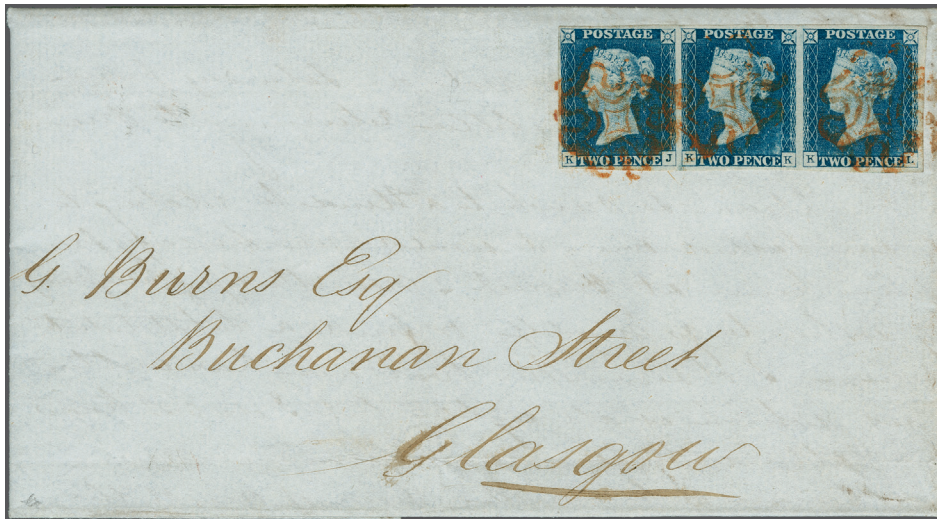 POSTAGE POSTAGE POSTAGE
K TWO PENCE J K TWO PENCE K K TWO PENCE L
G. Burns Esq
Buchanan Street
Glasgow